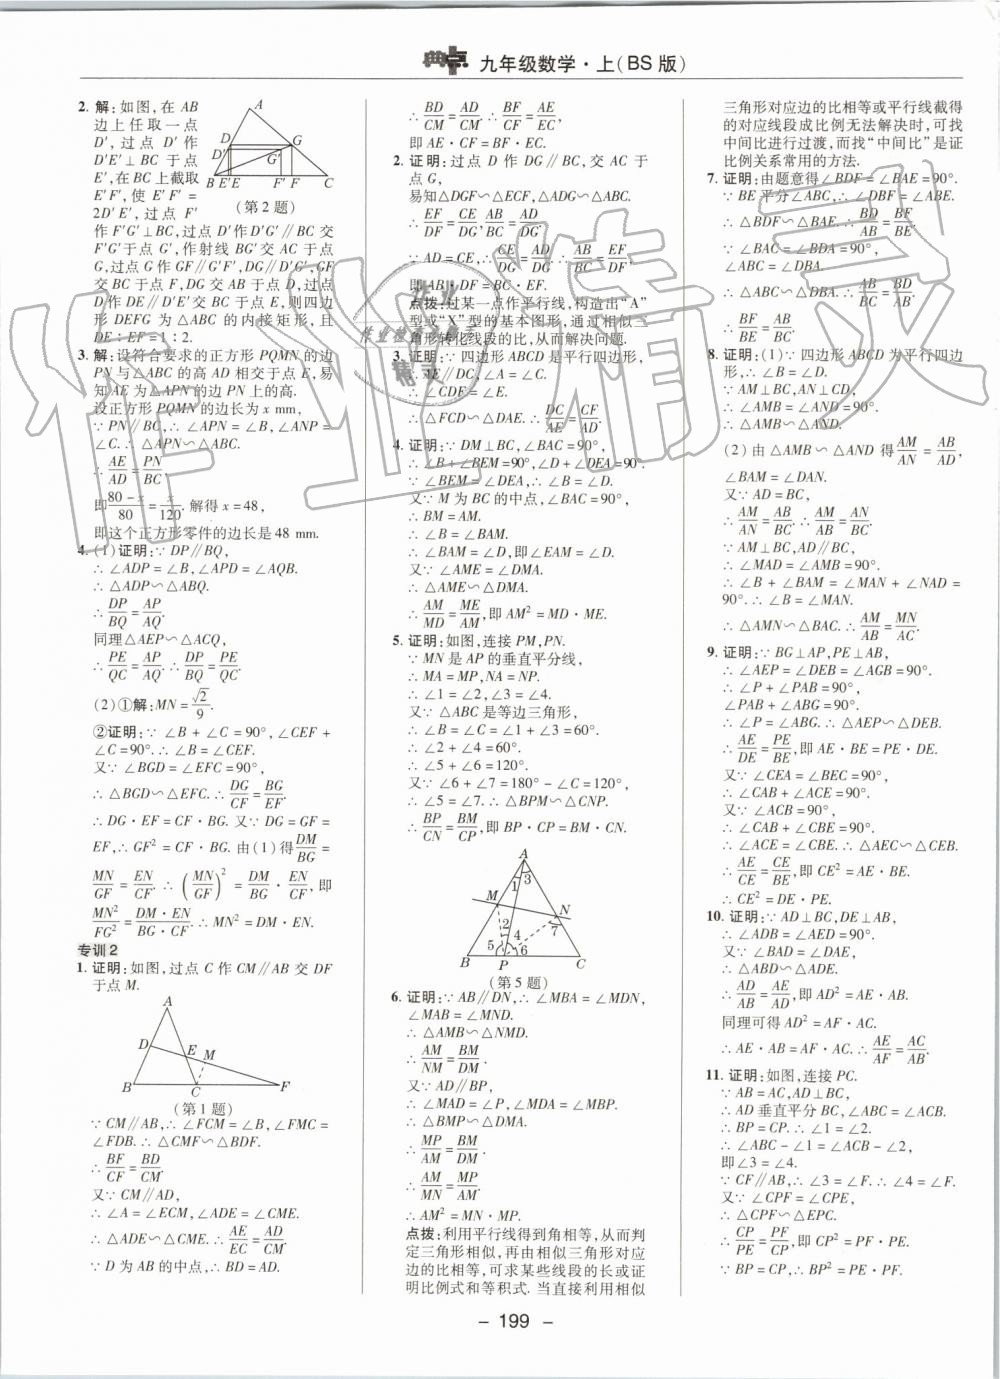 典点 九年级数学·上(BS版)
2. 解:如图,在 AB
边上任取一点
D′,过点 D′作
D′E′⊥BC 于点
E′,在 BC 上截取
E′F′,使 E′F′=
2D′E′,过点 F′
作 F′G′⊥BC,过点 D′作D′G′∥BC交
F′G′于点 G′,作射线 BG′交 AC 于点
G,过点 G 作 GF∥G′F′,DG∥D′G′,GF
交 BC 于点 F,DG 交 AB 于点 D,过点
D作DE∥D′E′交 BC 于点 E,则四边
形 DEFG 为△ABC 的内接矩形,且
DE:EF=1:2.
3. 解:设符合要求的正方形 PQMN 的边
PN与△ABC 的高 AD 相交于点 E,易
知AE 为△APN 的边 PN 上的高.
设正方形PQMN的边长为 x mm,
∵ PN∥BC,∴ ∠APN = ∠B,∠ANP =
∠C.∴ △APN∽△ABC.
∴ AE/AD = PN/BC.
即 (80-x)/80 = x/120. 解得 x=48,
即这个正方形零件的边长是 48 mm.
4. (1)证明:∵ DP∥BQ,
∴ ∠ADP=∠B,∠APD=∠AQB.
∴ △ADP∽△ABQ.
∴ DP/BQ = AP/AQ.
同理△AEP∽△ACQ,
∴ PE/QC = AP/AQ. ∴ DP/BQ = PE/QC.
(2)①解:MN=√2/9.
②证明:∵ ∠B + ∠C = 90°,∠CEF +
∠C=90°.∴ ∠B=∠CEF.
又∵ ∠BGD=∠EFC=90°,
∴ △BGD∽△EFC.∴ DG/CF = BG/EF.
∴ DG·EF=CF·BG. 又∵ DG=GF=
EF,∴ GF²=CF·BG. 由(1)得 DM/BG =
MN/GF = EN/CF. ∴ (MN/GF)² = DM/BG · EN/CF,即
MN²/FG² = DM·EN/BG·CF.∴ MN²=DM·EN.
A D G D′ G′ B E′ E F′ F C
(第 2 题)
专训2
1. 证明:如图,过点 C 作 CM∥AB 交 DF
于点 M.
A D E M B C F
(第 1 题)
∵ CM∥AB,∴ ∠FCM=∠B,∠FMC=
∠FDB.∴ △CMF∽△BDF.
∴ BF/CF = BD/CM.
又∵ CM∥AD,
∴ ∠A=∠ECM,∠ADE=∠CME.
∴ △ADE∽△CME.∴ AE/EC = AD/CM.
∵ D 为 AB 的中点,∴ BD=AD.
∴ BD/CM = AD/CM.∴ BF/CF = AE/EC,
即 AE·CF=BF·EC.
2. 证明:过点 D 作 DG∥BC,交 AC 于
点 G,
易知△DGF∽△ECF,△ADG∽△ABC.
∴ EF/DF = CE/DG, AB/BC = AD/DG.
∵ AD=CE,∴ CE/DG = AD/DG.∴ AB/BC = EF/DF,
即 AB·DF=BC·EF.
点拨:过某一点作平行线,构造出“A”
型或“X”型的基本图形,通过相似三
角形转化线段的比,从而解决问题.
3. 证明:∵ 四边形 ABCD 是平行四边形,
∴ AE∥DC,∠A=∠C.
∴ ∠CDF=∠E.
∴ △FCD∽△DAE.∴ DC/AE = CF/AD.
4. 证明:∵ DM⊥BC,∠BAC=90°,
∴ ∠B+∠BEM=90°,∠D+∠DEA=90°.
∵ ∠BEM=∠DEA,∴ ∠B=∠D.
又∵ M 为 BC 的中点,∠BAC=90°,
∴ BM=AM.
∴ ∠B=∠BAM.
∴ ∠BAM=∠D,即∠EAM=∠D.
又∵ ∠AME=∠DMA.
∴ △AME∽△DMA.
∴ AM/MD = ME/AM,即 AM²=MD·ME.
5. 证明:如图,连接 PM,PN.
∵ MN 是 AP 的垂直平分线,
∴ MA=MP,NA=NP.
∴ ∠1=∠2,∠3=∠4.
又∵ △ABC 是等边三角形,
∴ ∠B=∠C=∠1+∠3=60°.
∴ ∠2+∠4=60°.
∴ ∠5+∠6=120°.
又∵ ∠6+∠7=180°-∠C=120°,
∴ ∠5=∠7.∴ △BPM∽△CNP.
∴ BP/CN = BM/CP,即 BP·CP=BM·CN.
A 1 3 M N 2 4 5 6 7 B P C
(第 5 题)
6. 证明:∵ AB∥DN,∴ ∠MBA=∠MDN,
∠MAB=∠MND.
∴ △AMB∽△NMD.
∴ AM/NM = BM/DM.
又∵ AD∥BP,
∴ ∠MAD=∠P,∠MDA=∠MBP.
∴ △BMP∽△DMA.
∴ MP/AM = BM/DM.
∴ AM/MN = MP/AM.
∴ AM²=MN·MP.
点拨:利用平行线得到角相等,从而判
定三角形相似,再由相似三角形对应
边的比相等,可求某些线段的长或证
明比例式和等积式. 当直接利用相似
三角形对应边的比相等或平行线截得
的对应线段成比例无法解决时,可找
中间比进行过渡,而找“中间比”是证
比例关系常用的方法.
7. 证明:由题意得∠BDF=∠BAE=90°.
∵ BE 平分∠ABC,∴ ∠DBF=∠ABE.
∴ △BDF∽△BAE.∴ BD/AB = BF/BE.
∵ ∠BAC=∠BDA=90°,
∠ABC=∠DBA.
∴ △ABC∽△DBA.∴ AB/BC = BD/AB.
∴ BF/BE = AB/BC.
8. 证明:(1)∵ 四边形 ABCD 为平行四边
形,∴ ∠B=∠D.
∵ AM⊥BC,AN⊥CD,
∴ ∠AMB=∠AND=90°.
∴ △AMB∽△AND.
(2) 由 △AMB∽△AND 得 AM/AN = AB/AD,
∠BAM=∠DAN.
又∵ AD=BC,
∴ AM/AN = AB/BC.∴ AM/AB = AN/BC.
∵ AM⊥BC,AD∥BC,
∴ ∠MAD=∠AMB=90°.
∴ ∠B + ∠BAM = ∠MAN + ∠NAD =
90°.∴ ∠B=∠MAN.
∴ △AMN∽△BAC.∴ AM/AB = MN/AC.
9. 证明:∵ BG⊥AP,PE⊥AB,
∴ ∠AEP=∠DEB=∠AGB=90°.
∴ ∠P+∠PAB=90°,
∠PAB+∠ABG=90°.
∴ ∠P=∠ABG.∴ △AEP∽△DEB.
∴ AE/DE = PE/BE,即 AE·BE=PE·DE.
又∵ ∠CEA=∠BEC=90°,
∴ ∠CAB+∠ACE=90°.
又∵ ∠ACB=90°,
∴ ∠CAB+∠CBE=90°.
∴ ∠ACE=∠CBE.∴ △AEC∽△CEB.
∴ AE/CE = CE/BE,即 CE²=AE·BE.
∴ CE²=DE·PE.
10. 证明:∵ AD⊥BC,DE⊥AB,
∴ ∠ADB=∠AED=90°.
又∵ ∠BAD=∠DAE,
∴ △ABD∽△ADE.
∴ AD/AB = AE/AD,即 AD²=AE·AB.
同理可得 AD²=AF·AC.
∴ AE·AB=AF·AC.∴ AE/AF = AC/AB.
11. 证明:如图,连接 PC.
∵ AB=AC,AD⊥BC,
∴ AD 垂直平分 BC,∠ABC=∠ACB.
∴ BP=CP.∴ ∠1=∠2.
∴ ∠ABC-∠1=∠ACB-∠2,
即∠3=∠4.
∵ CF∥AB,∴ ∠3=∠F.∴ ∠4=∠F.
又∵ ∠CPF=∠CPE,
∴ △CPF∽△EPC.
∴ CP/PE = PF/CP,即 CP²=PF·PE.
∵ BP=CP,∴ BP²=PE·PF.
- 199 -
作业精灵
作业检查小助手